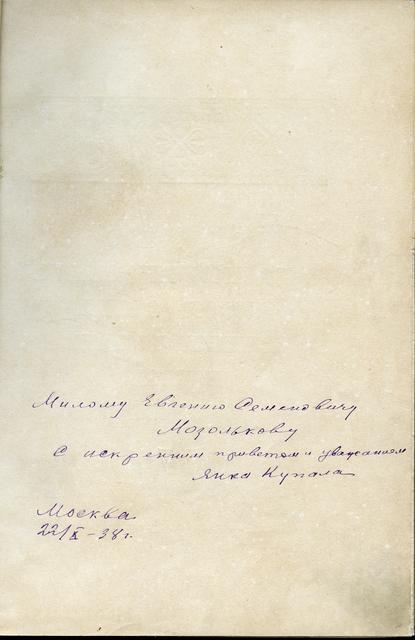 Милому Евгению Семеновичу
Мозолькову
С искренним приветом и уважением
Янка Купала
Москва
22/X-38 г.